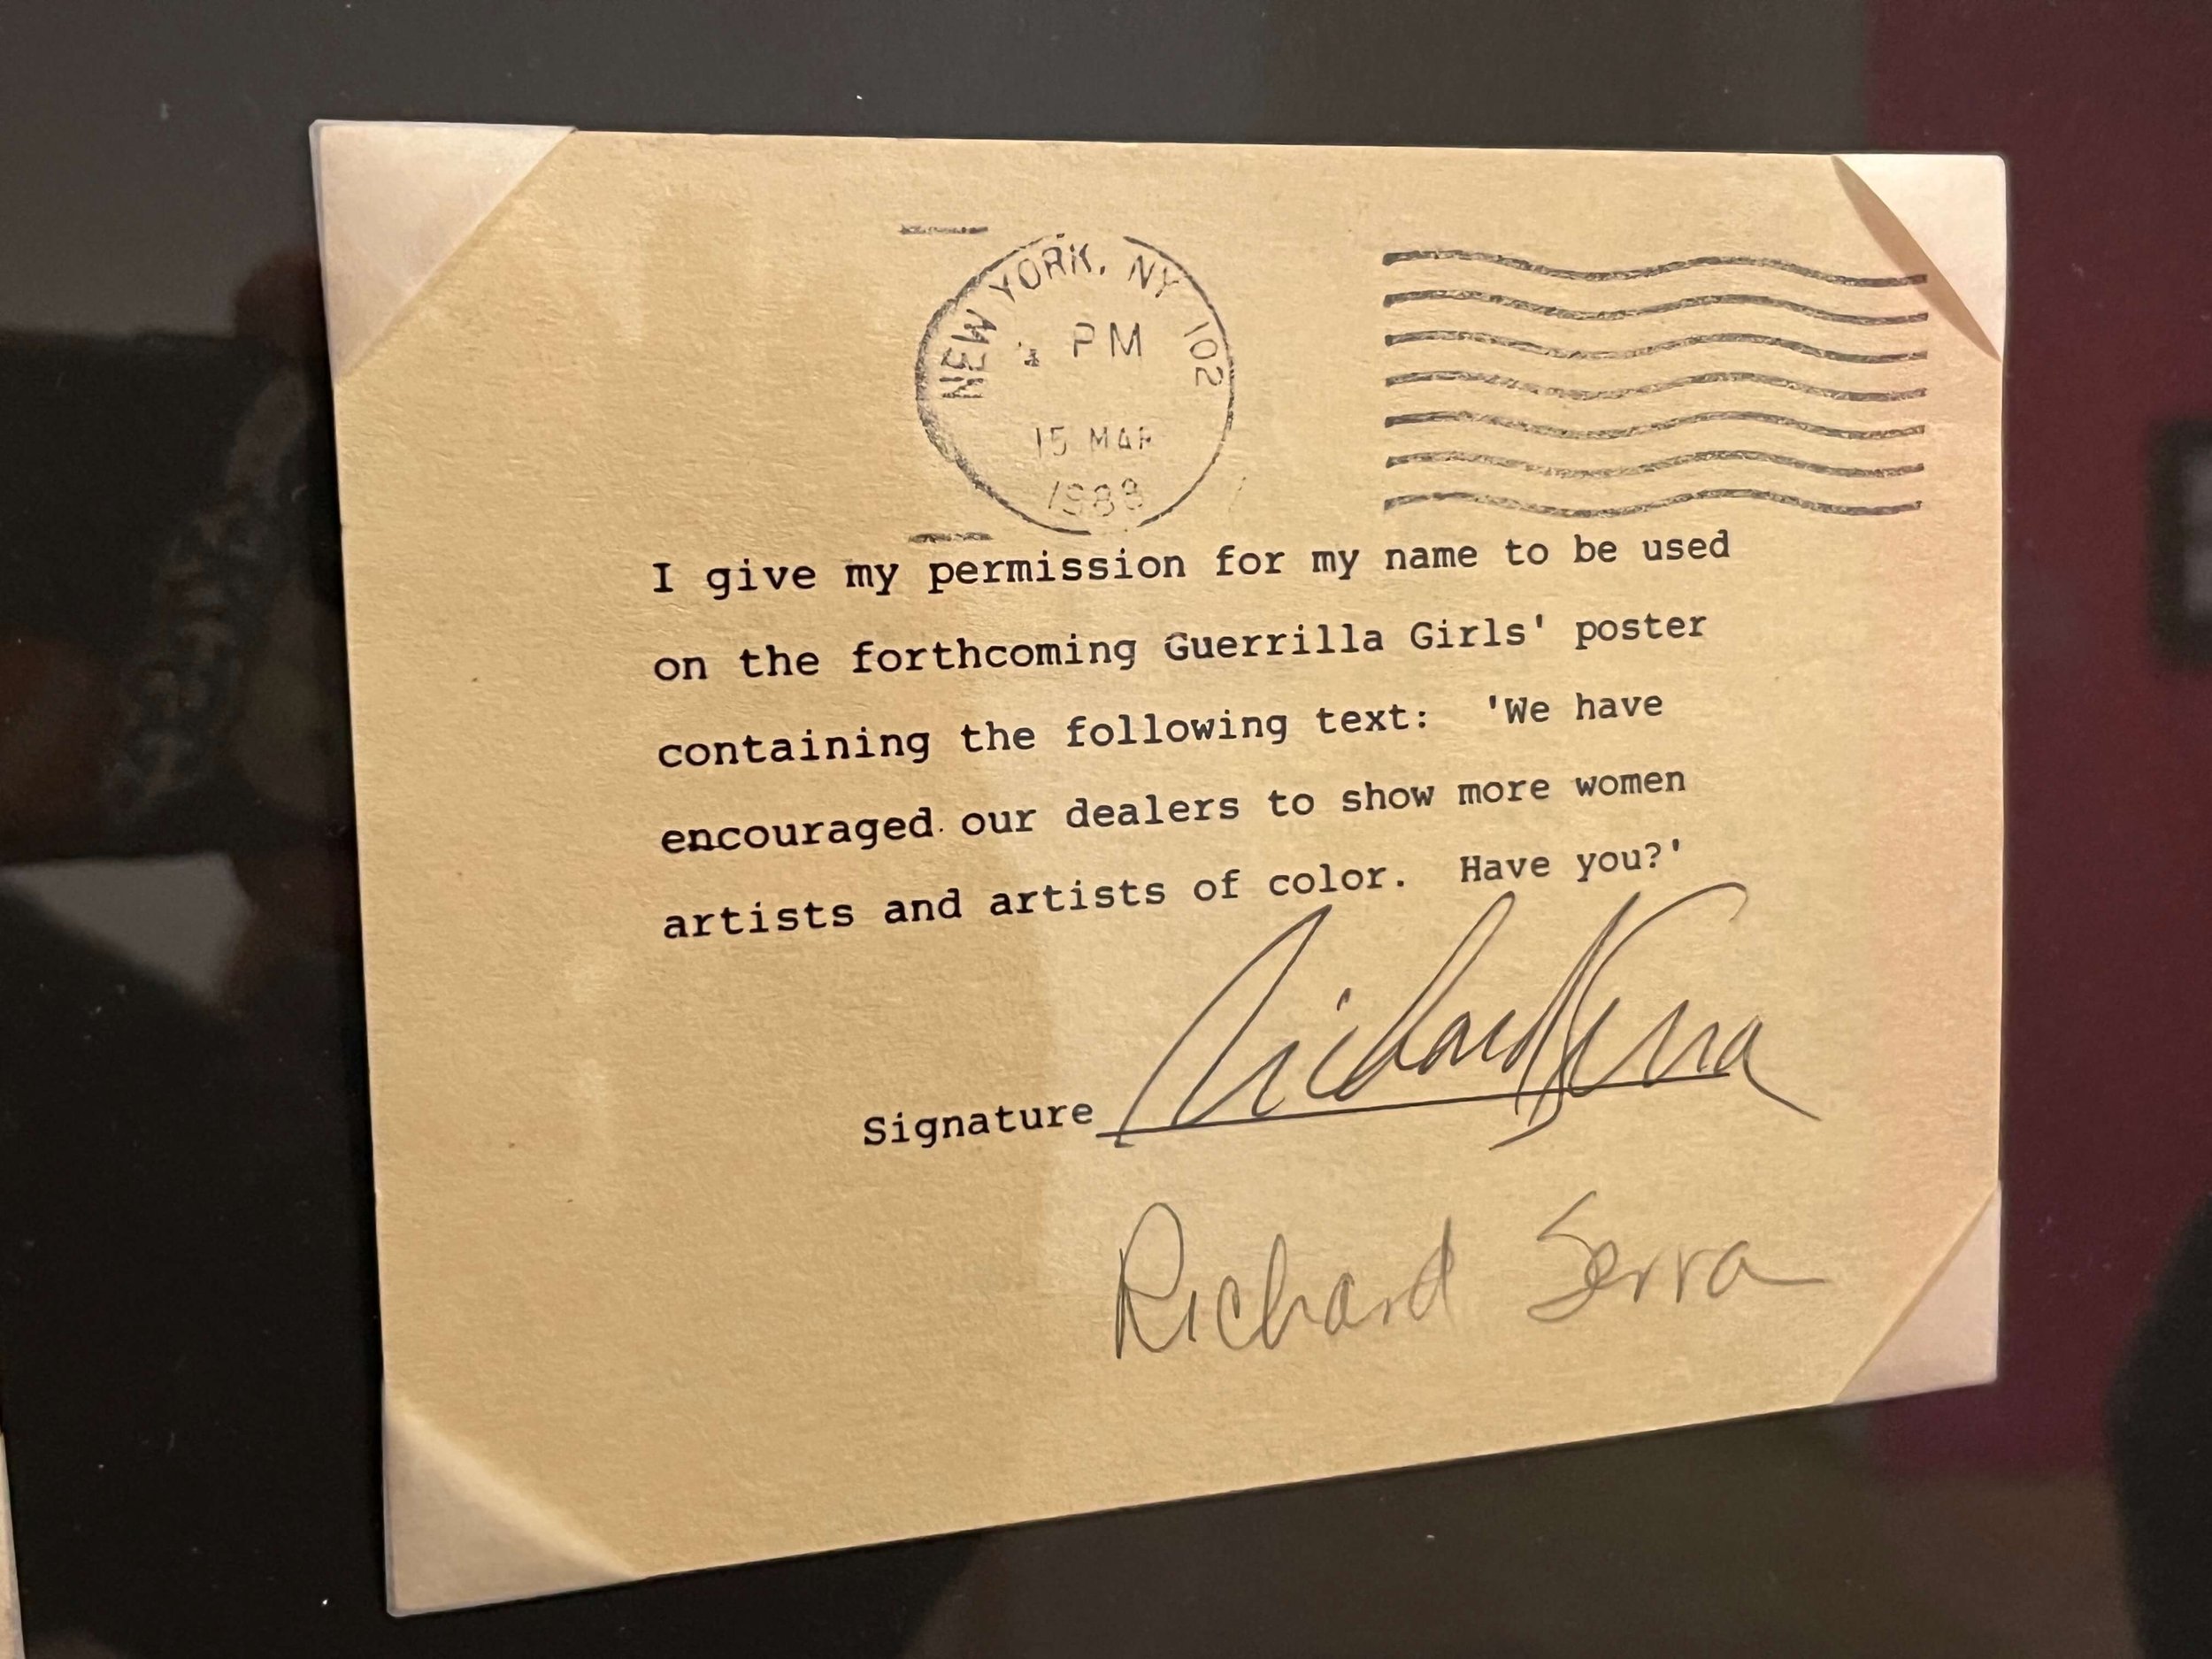 NEW YORK, NY 102
PM
15 MAR
1988
I give my permission for my name to be used
on the forthcoming Guerrilla Girls' poster
containing the following text:  'We have
encouraged our dealers to show more women
artists and artists of color.  Have you?'
Signature Richard Serra
Richard Serra